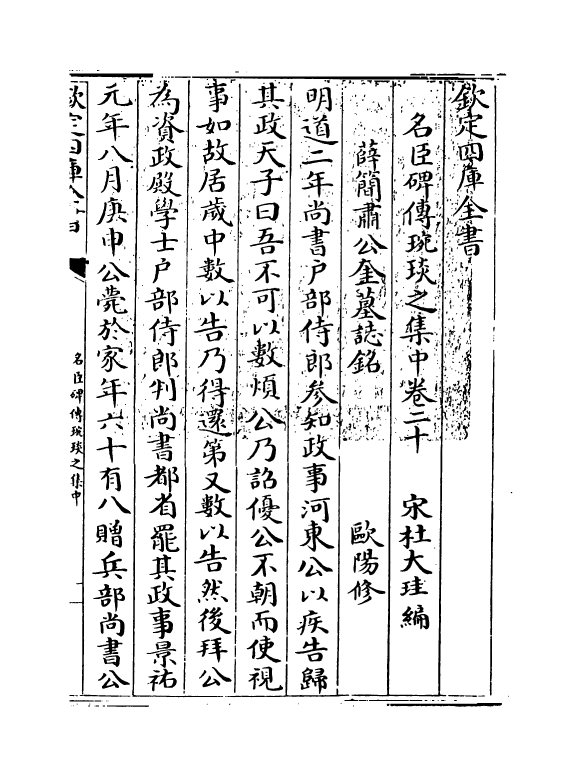 欽定四庫全書
名臣碑傳琬琰之集中卷二十　宋杜大珪編
薛簡肅公奎墓誌銘　歐陽修
明道二年尚書户部侍郎參知政事河東公以疾告歸
其政天子曰吾不可以數煩公乃詔優公不朝而使視
事如故居歲中數以告乃得還第又數以告然後拜公
為資政殿學士户部侍郎判尚書都省罷其政事景祐
元年八月庚申公薨於家年六十有八贈兵部尚書公
欽定四庫全書
名臣碑傳琬琰之集中
一